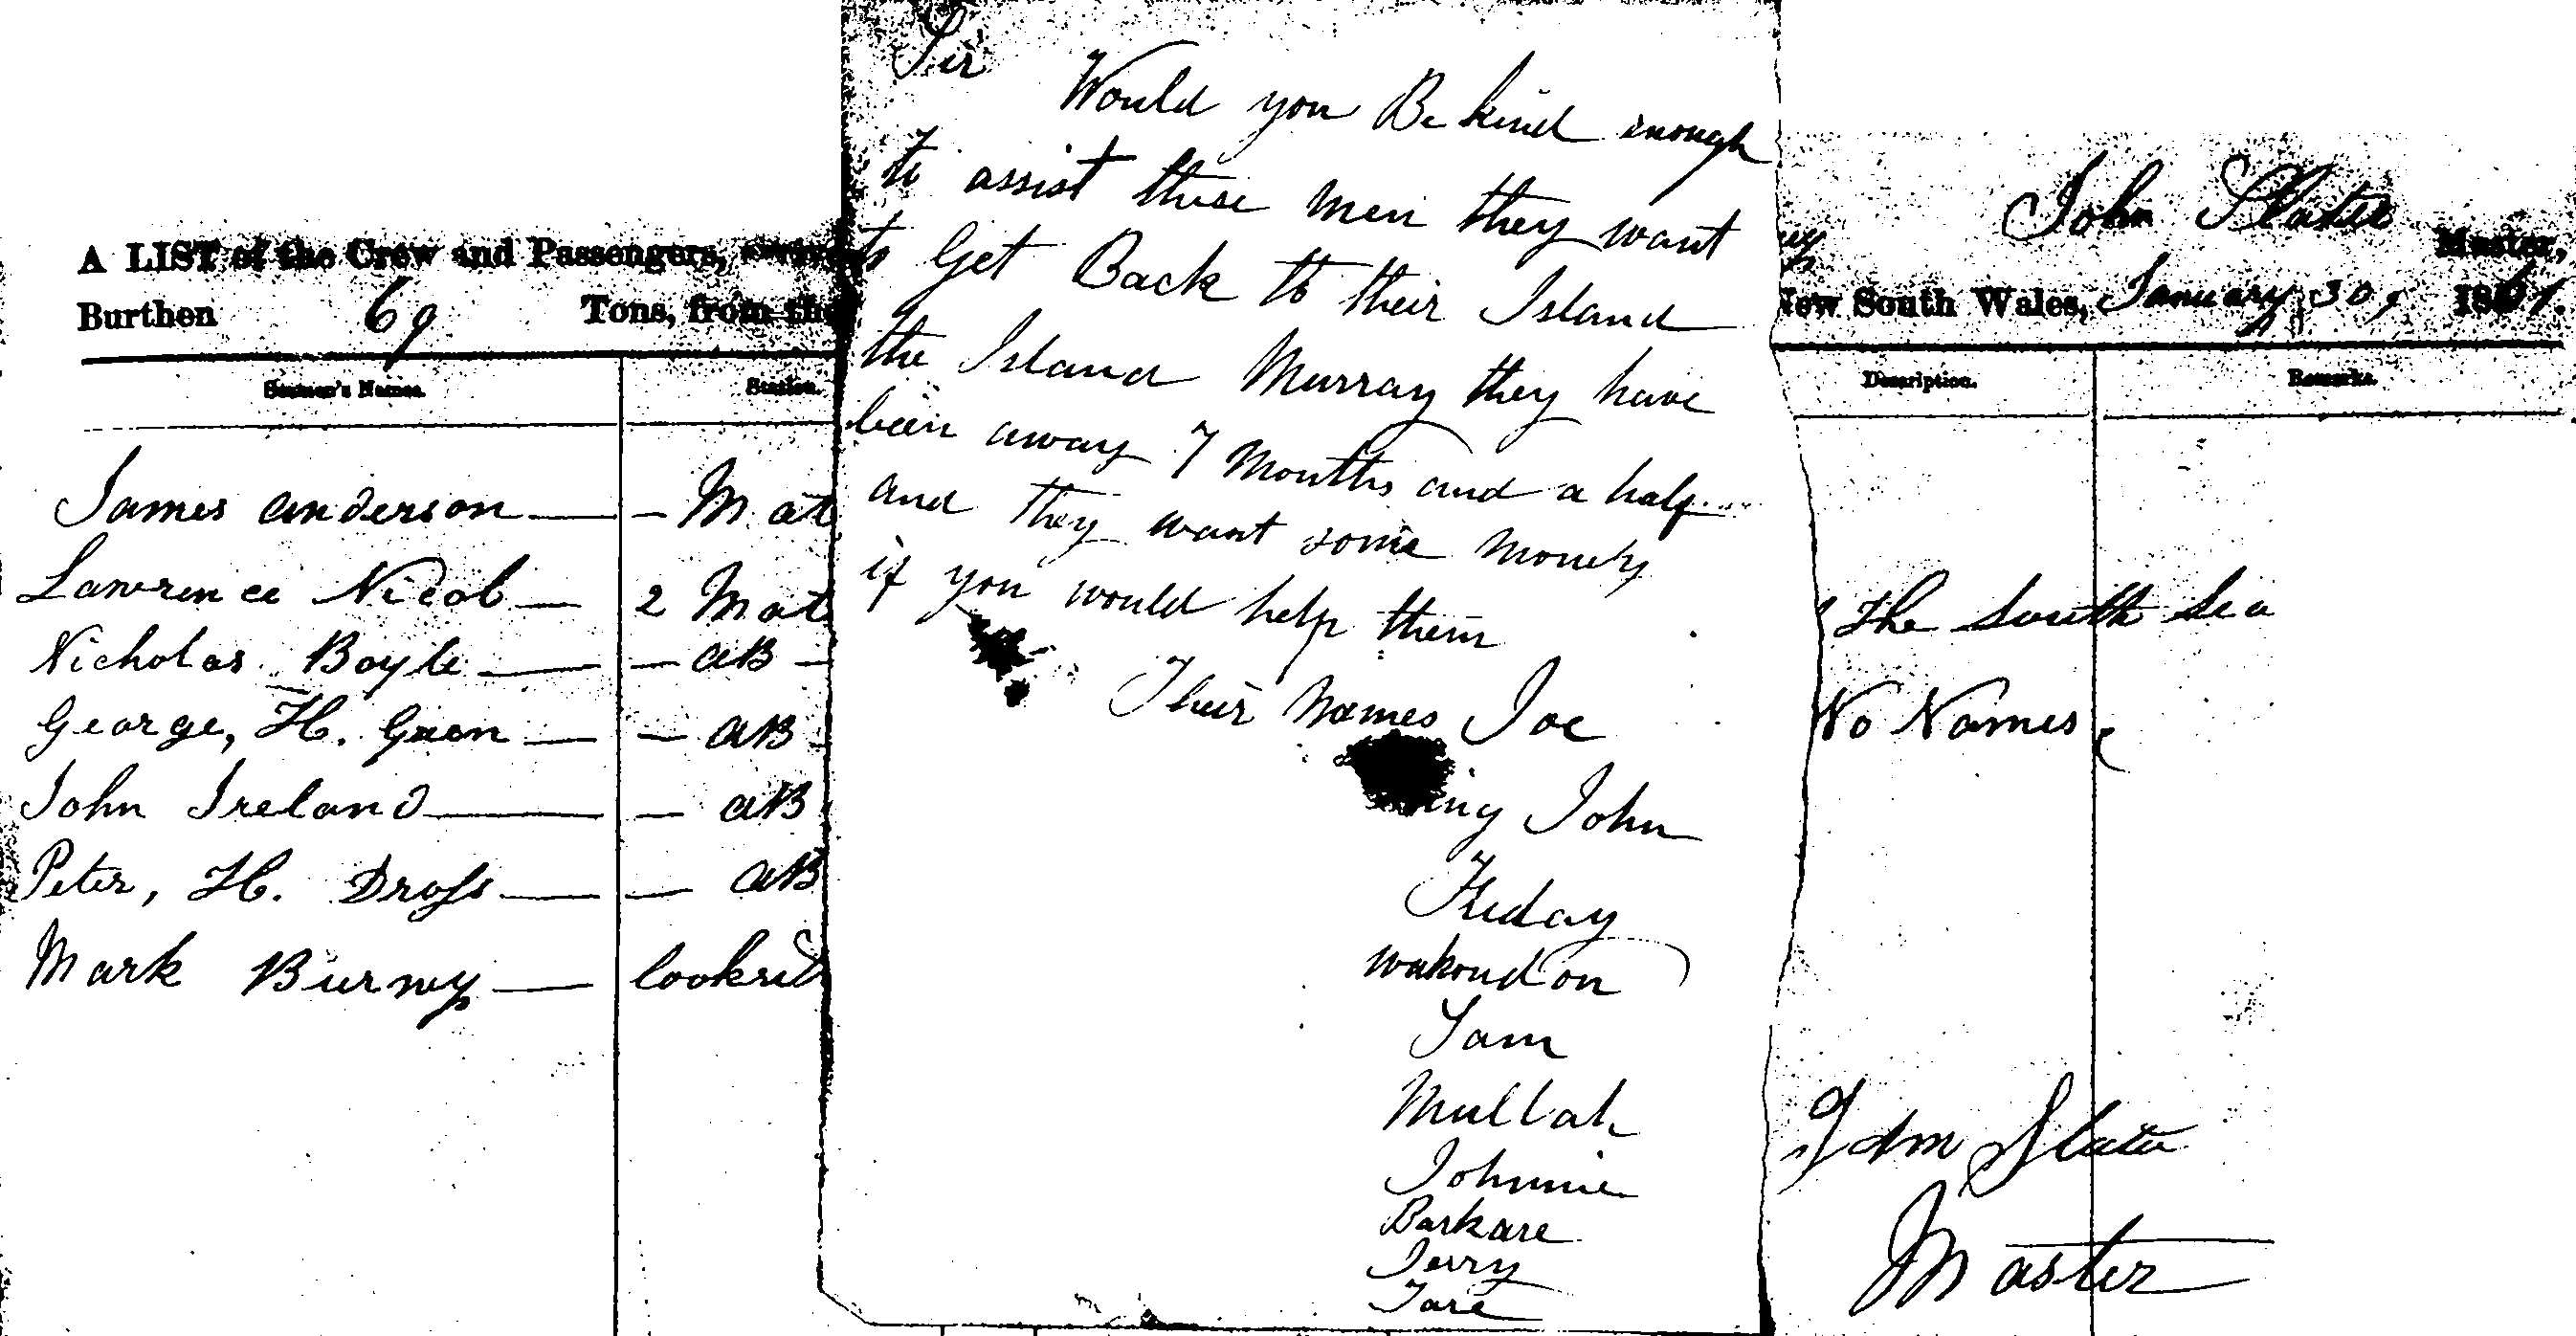 A LIST of the Crew and Passengers,
Burthen 69 Tons, from the
Seamen's Names. Station.
James anderson — — Mat
Lawrence Nicol — 2 Mat
Nicholas Boyle — — aB —
George, H. Green — — aB
John Ireland — — aB
Peter, H. Dross — — aB
Mark Burney —
Sir
Would you Be kind enough
to assist these men they want
to Get Back to their Island
the Island Murray they have
been away 7 Months and a half
and they want some money
if you would help them
Their names Joe
John
Friday
Sam
Mullah
Johnnie
Barkare
Jerry
Tare
John Slater Master,
New South Wales, January 30, 1861.
Description. Remarks.
the South Sea
No Names
Jam Slater
Master